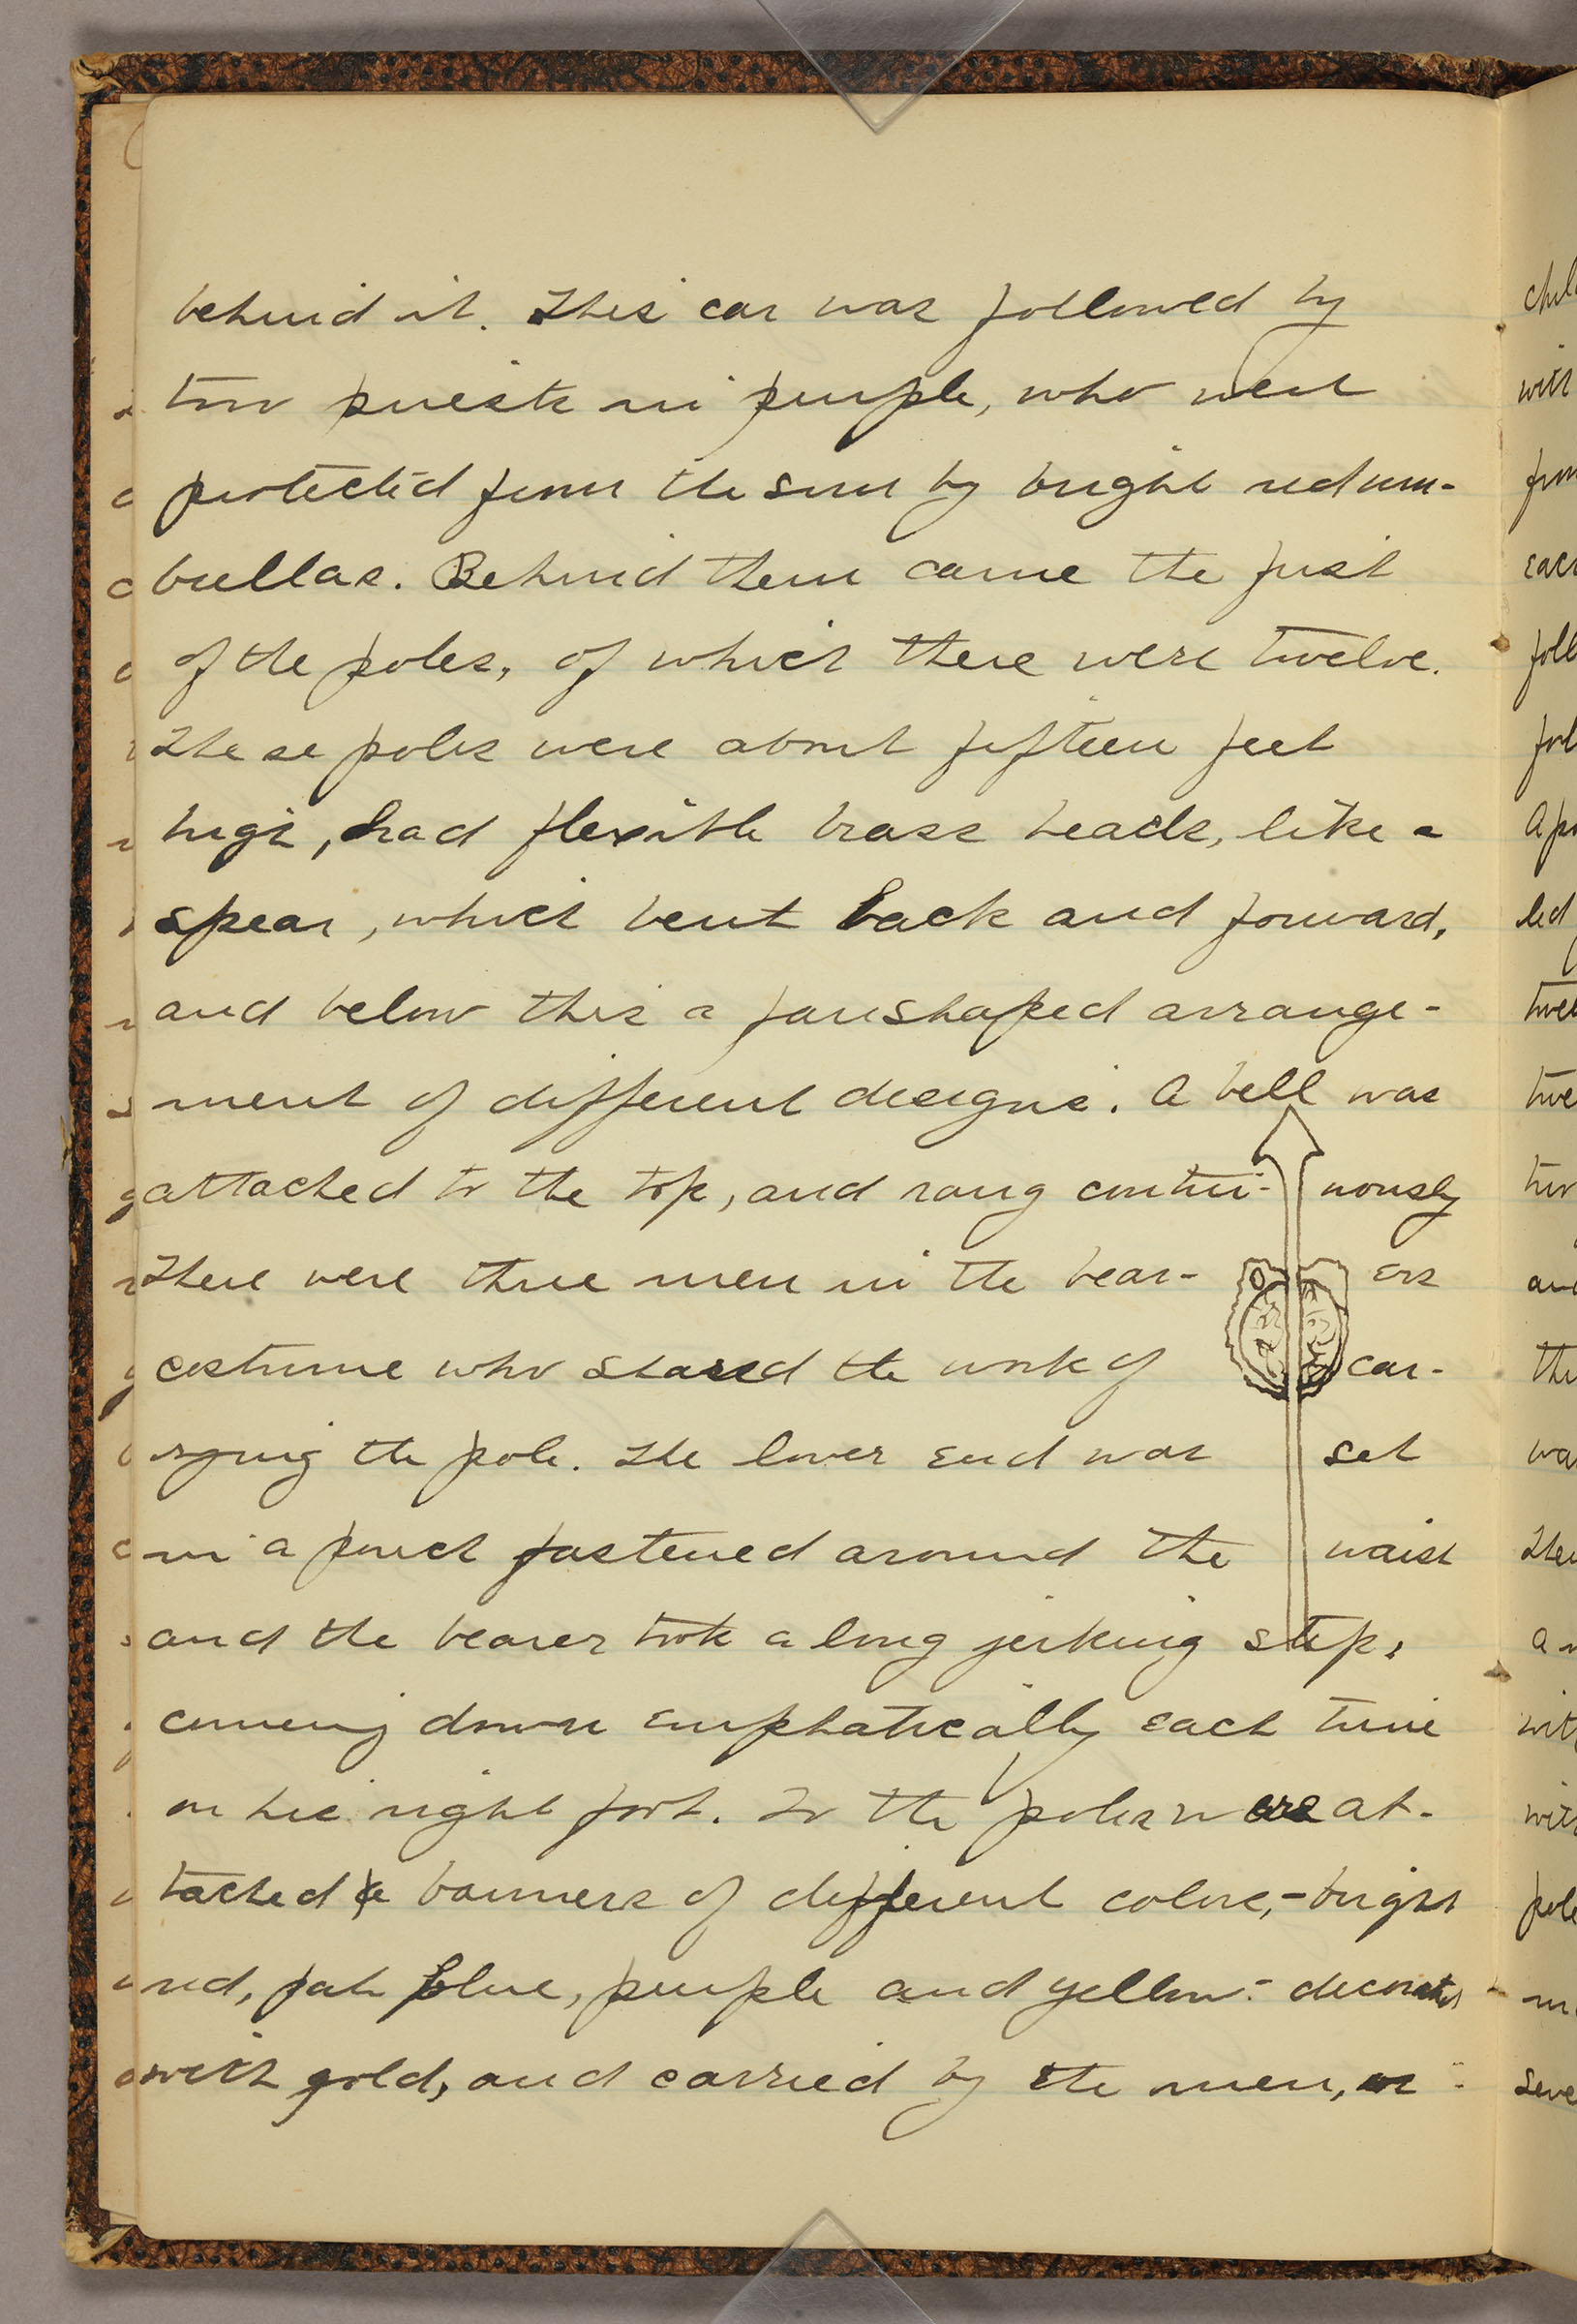 behind it. This car was followed by
two priests in purple, who went
protected from the sun by bright red um-
brellas. Behind them came the first
of the poles, of which there were twelve.
These poles were about fifteen feet
high, had flexible brass heads, like a
spear, which bent back and forward,
and below this a fanshaped arrange-
ment of different designs. A bell was
attached to the top, and rang contin- uously
There were three men in the bear- ers
costume who shared the work of car-
rying the pole. The lower end was set
in a pouch fastened around the waist
and the bearer took a long jerking step,
coming down emphatically each time
on his right foot. To the poles were at-
tached banners of different colors,- bright
red, pale blue, purple and yellow - decorated
with gold, and carried by the men, or